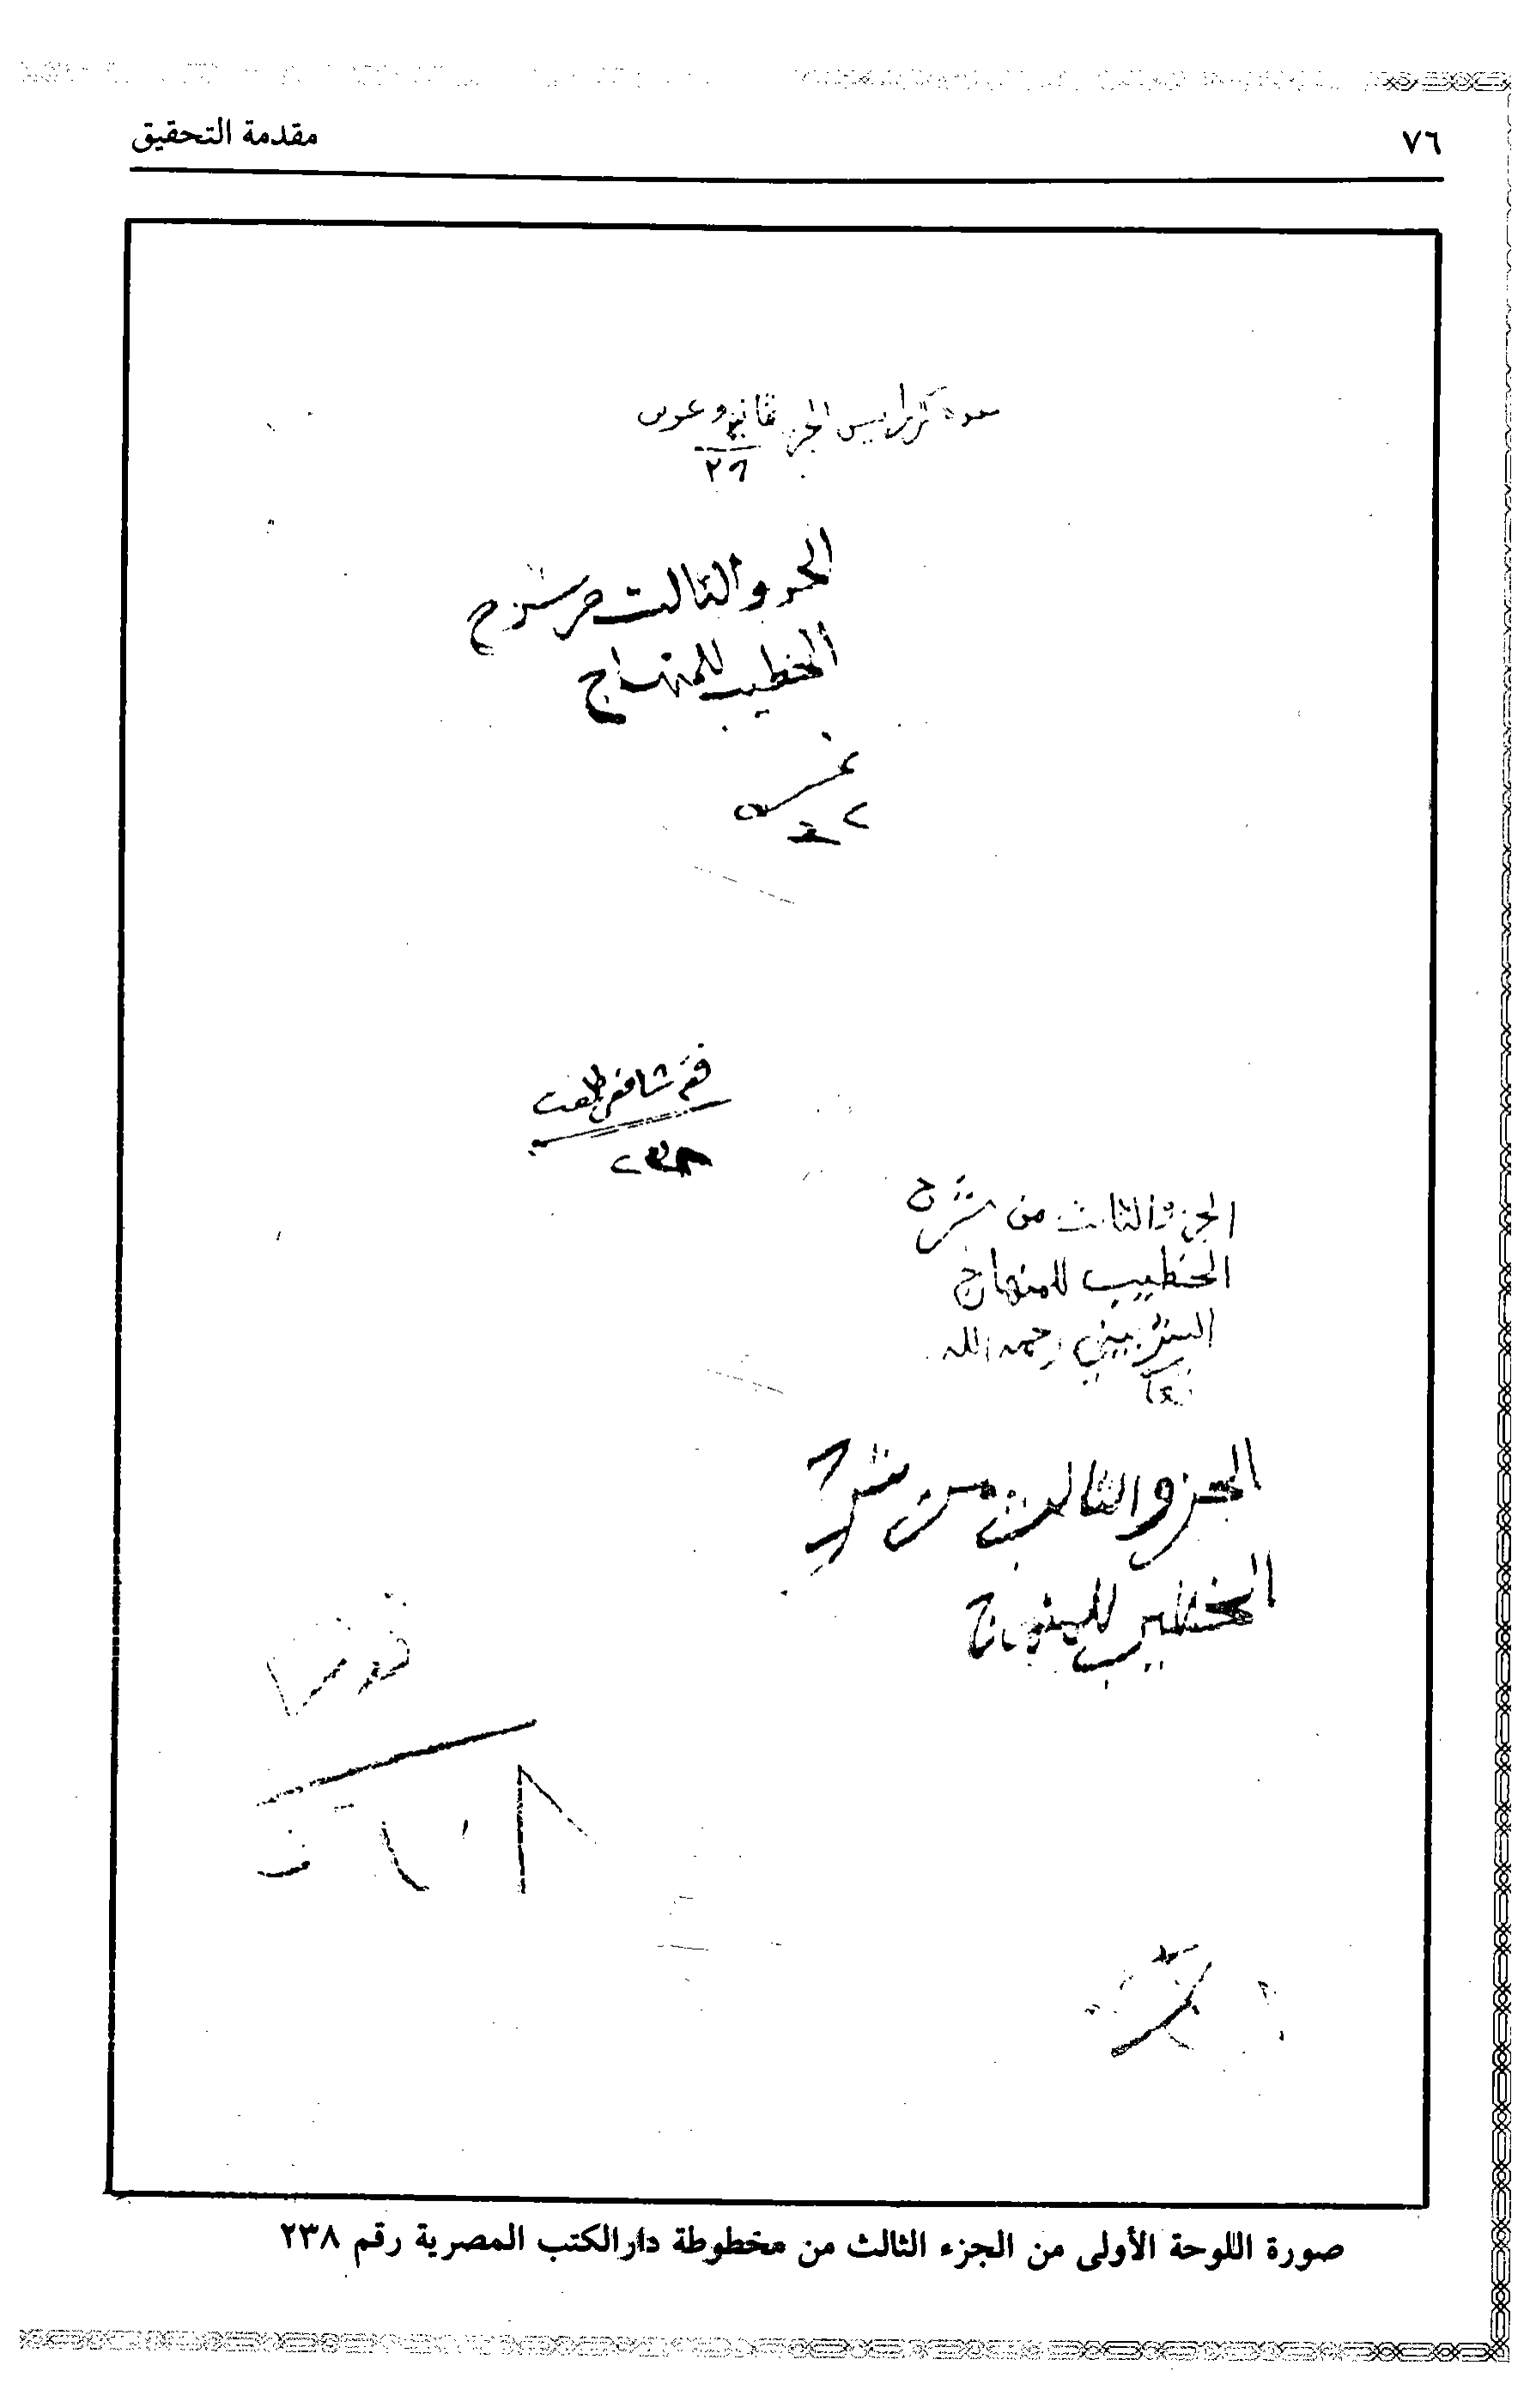 ٧٦
مقدمة التحقيق
كراريس الجزء
٢٦
الجزو الثالث من شرح
الخطيب للمنهاج
نمره
فقه شافعي طلعت
٢٣٨
الجزو الثالث من شرح
الخطيب للمنهاج
الشربيني رحمه الله
الجزو الثالث من شرح
الخطيب للمنهاج
صورة اللوحة الأولى من الجزء الثالث من مخطوطة دار الكتب المصرية رقم ٢٣٨